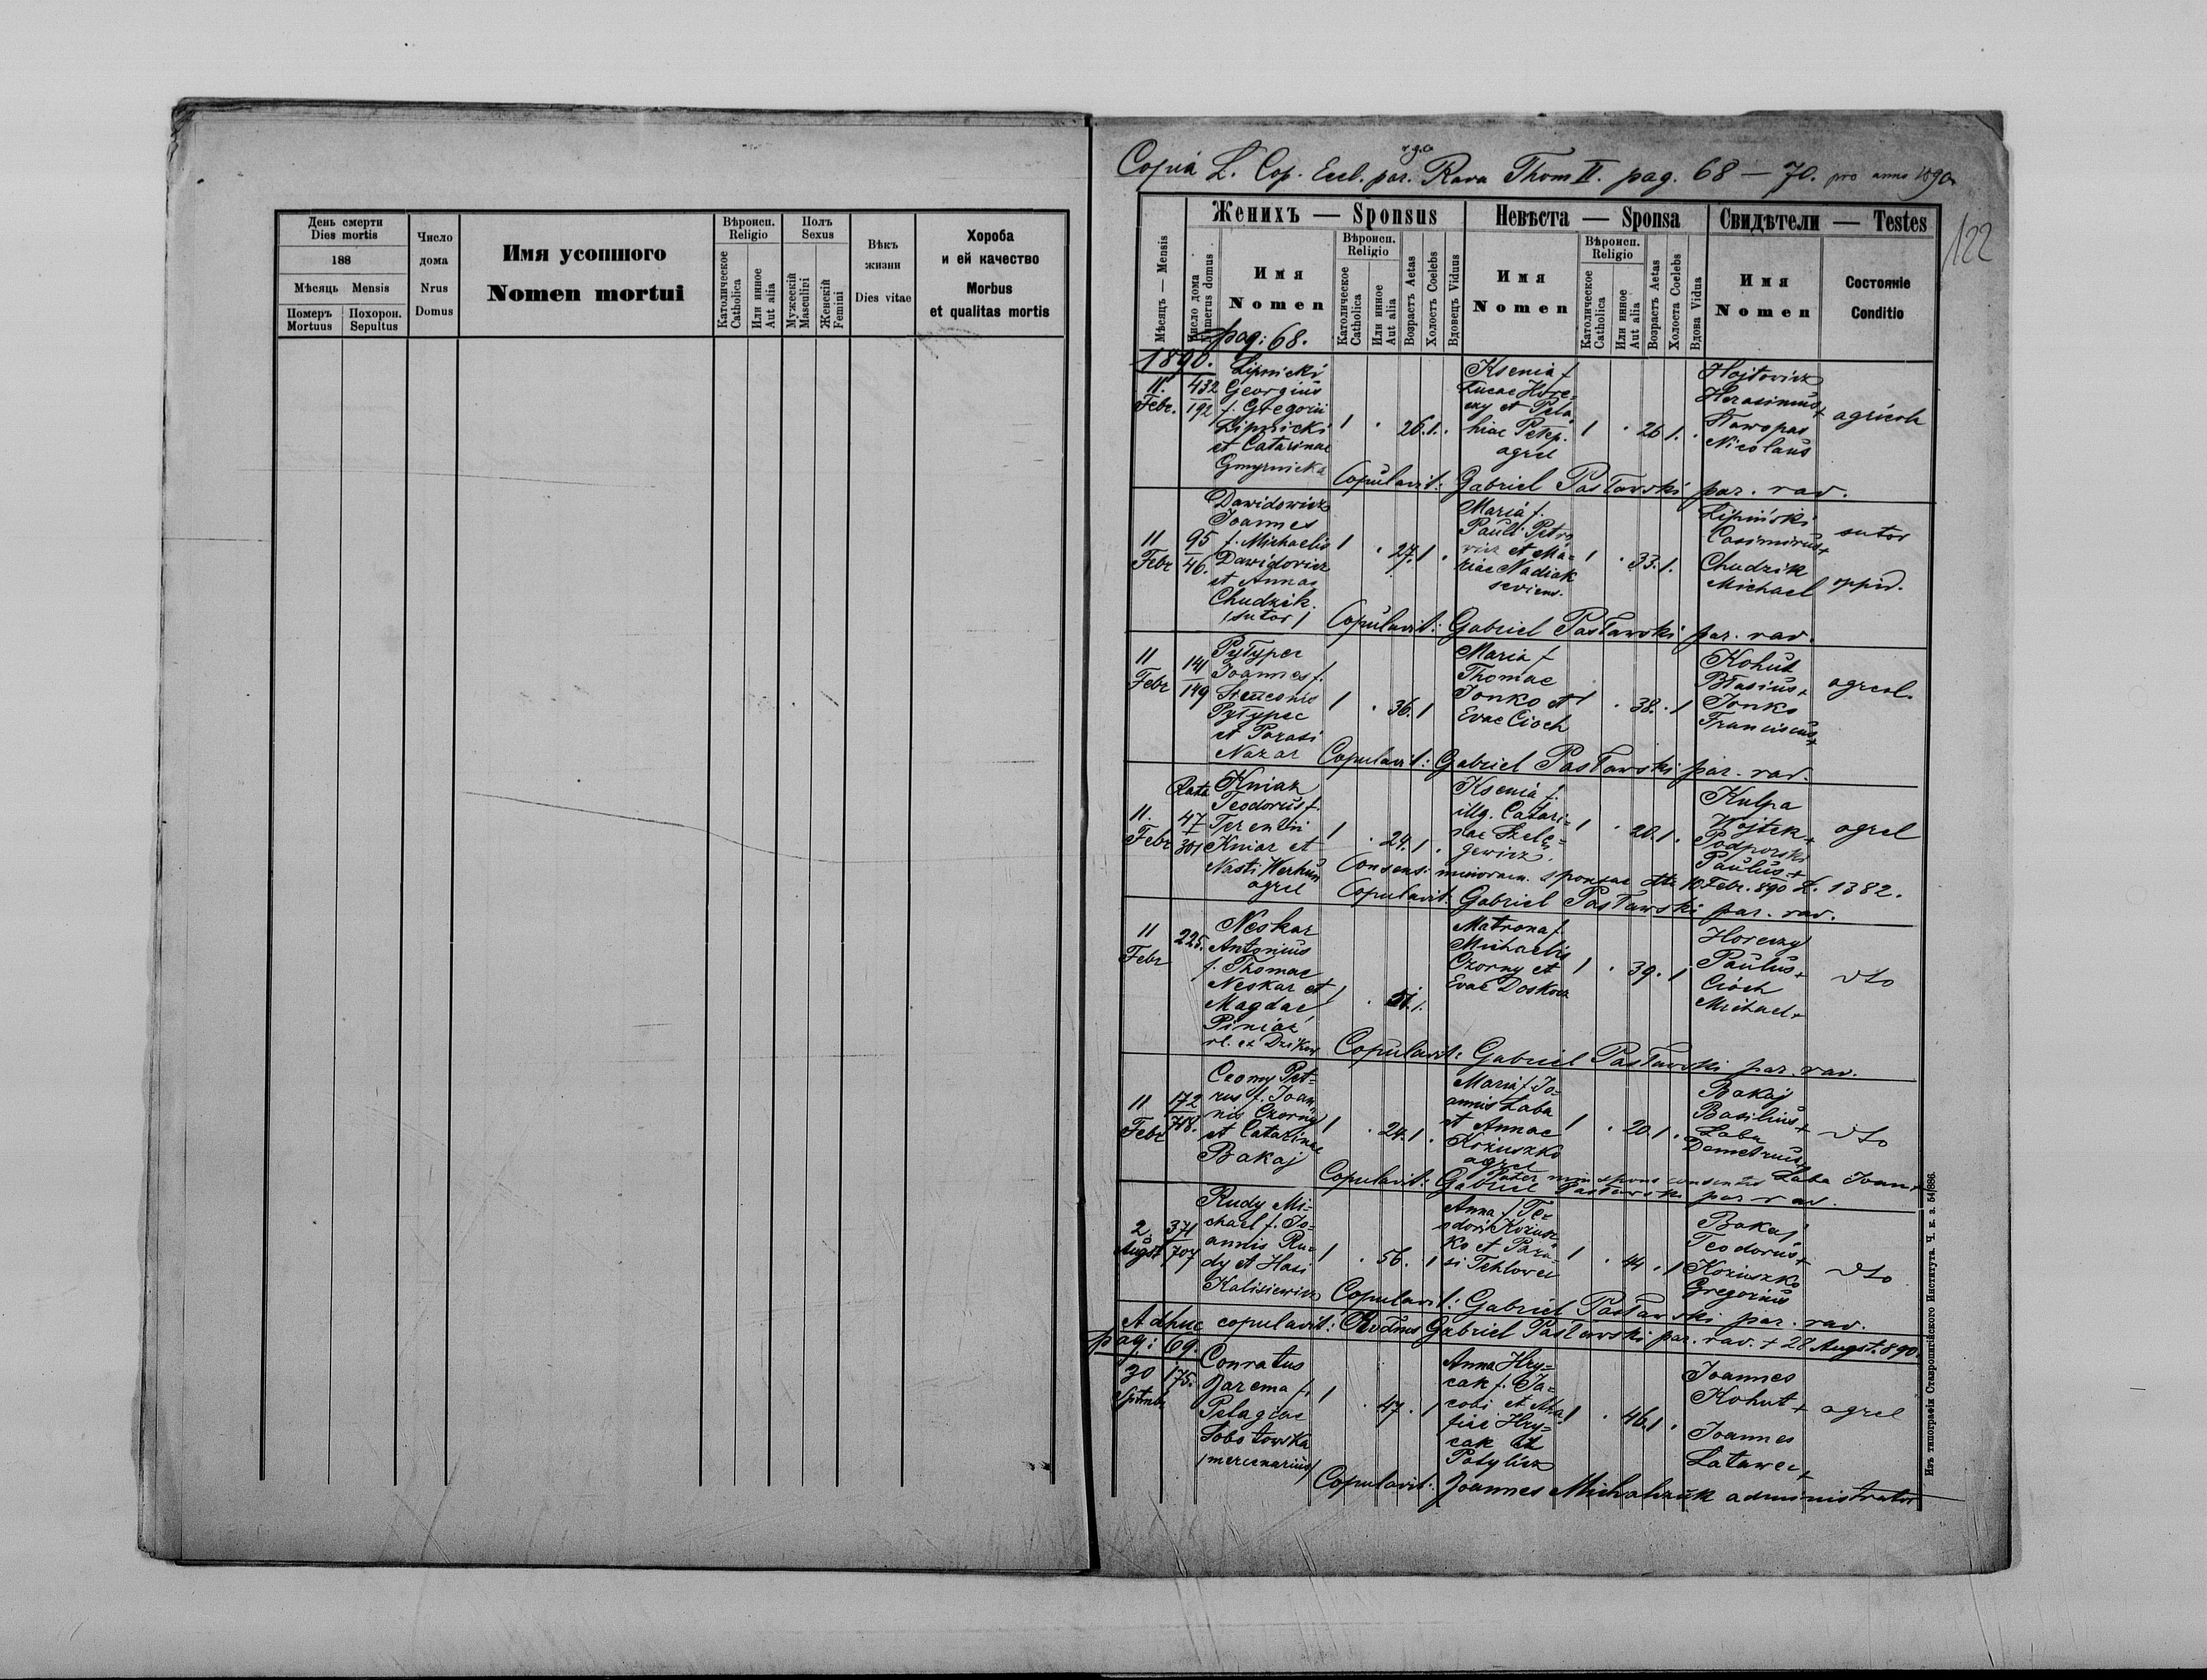 День смерти
Dies mortis
188
Мѣсяць Mensis
Померъ
Mortuus
Похорон.
Sepultus
Число
дома
Nrus
Domus
Имя усопшого
Nomen mortui
Вѣроисп.
Religio
Католическое
Catholica
Или инное
Aut alia
Полъ
Sexus
Мужескій
Masculini
Женскій
Femini
Вѣкъ
жизни
Dies vitae
Хороба
и ей качество
Morbus
et qualitas mortis
r.g.c
Copia L. Cop. Eccl. par. Rava Thom II. pag. 68 — 70. pro anno 1890.
122
Женихъ — Sponsus
Невѣста — Sponsa
Свидѣтели — Testes
Мѣсяцъ — Mensis
Число дома
Numerus domus
Имя
Nomen
Вѣроисп.
Religio
Католическое
Catholica
Или инное
Aut alia
Возрастъ Aetas
Холостъ Coelebs
Вдовецъ Viduus
Имя
Nomen
Вѣроисп.
Religio
Католическое
Catholica
Или инное
Aut alia
Возрастъ Aetas
Холоста Coelebs
Вдова Vidua
Имя
Nomen
Состояніе
Conditio
pag: 68.
1890.
11.
Febr.
432
192
Lipnicki
Georgius
f. Gregorii
Lipnicki
et Catarinae
Gmyrnicka
1 . 26. 1. .
Ksenia f.
Lucae Hore=
czy et Pela
hiae Petep.
agrel
1 . 26 1. .
Hojtowicz
Herasimus +
Nicolaus
agricola
Copulavit: Gabriel Pasławski par. rav.
11
Febr
95
46.
Dawidowicz
Joannes
f. Michaelis
Dawidowicz
et Annae
Chudzik.
/sutor/
1 . 27. 1 .
Maria f.
Pauli Petro
wicz et Ma=
riae Nadiak
serviens.
1 . 33. 1.
Lipiński
Casimirus +
Chudzik
Michael
sutor
oppid.
Copulavit: Gabriel Pasławski par. rav.
11
Febr
141
149
Pyłypec
Joannes f.
Stecconis
Pyłypec
et Parasi
Nazar
1 . 36. 1
Maria f
Thomae
Jonko et
Evae Cioch
1 . 38. . 1
Kohut
Błasius +
Jonko
Franciscus +
agrcol.
Copulavit: Gabriel Pasławski par. rav.
11.
Febr
Rata
47
301
Kniaz
Teodorus f.
Terentii
Kniaz et
Nasti Werhun
agrel
1 . 24. 1 .
Ksenia f.
illg. Catari=
nae Szelę=
gewicz.
1 . 20. 1 .
Kulpa
Wojtek +
Podporski
Paulus +
agrel
Consens. minorem. sponsae dtto 10. Febr. 890 L. 1382.
Copulavit: Gabriel Pasławski par. rav.
11
Febr
225.
Neskar
Antonius
f. Thomae
Neskar et
Magdae
Piniaz
1 . 51. 1.
Matrona f.
Michaelis
Czorny et
Evae Doskocz
1 . 39. . 1
Horeczy
Paulus +
Cioch
Michael +
dto
Copulavit: Gabriel Pasławski par. rav.
11
Febr
172
718.
Czorny Pet=
rus f. Joan=
nis Czorny
et Catarinae
Bakaj
1 . 24. 1 .
Maria f. Jo=
annis Łaba
et Annae
Kożuszko
agrel
1 . 20. 1 .
Bakaj
Basilius +
Łaba
Demetrius +
dto
Pater min spons consentio Łaba Joan +
Copulavit: Gabriel Pasławski par rav.
2
August
371
707
Rudy Mi=
chael f. Jo=
annis Ru=
dy et Hasi
Kalisiewicz
1 . 56. . 1
Anna f. Te=
odori Kożusz
ko et Para=
si Tehlowei
1 . 44 . 1
Bakaj
Teodorus +
Kożuszko
Gregorius
dto
Copulavit: Gabriel Pasławski par. rav.
Adhuc copulavit: Rvdmus Gabriel Pasławski par. rav. + 28 August. 890.
pag: 69.
30
Sptmbr
175.
Conratus
Jarema f.
Pelagiae
Sobotowska
/mercenarius/
1 . 47. . 1
Anna Hry=
cak f. Ja=
cobi et Ma
fiae Hry=
cak et
Patylicz
1 . 46. 1 .
Joannes
Kohut +
Joannes
Łatawec +
agrel
Copulavit: Joannes Michalczuk administrator
Изъ типографіи Ставропигійского Института. Ч. к. з. 54/886.